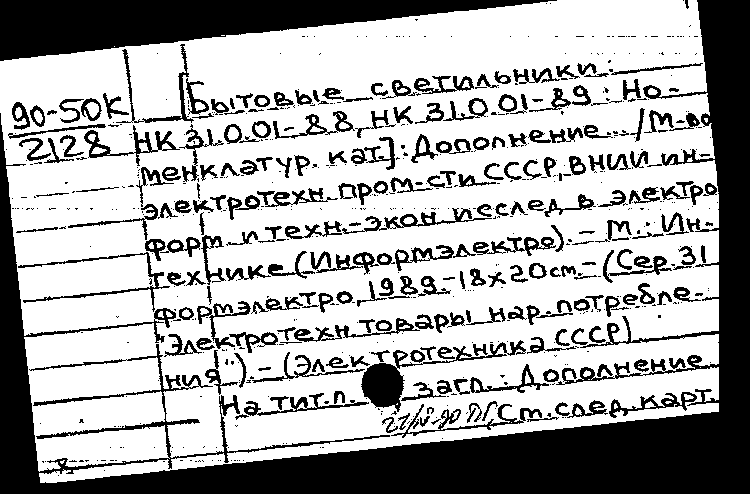 90-50К
2128
[Бытовые светильники:
НК 31.0.01-88, НК 31.0.01-89: Но-
менклатур. кат.]: Дополнение... /М-во
электротехн. пром-сти СССР, ВНИИ ин-
форм. и техн.-экон. исслед. в электро
технике (Информэлектро). - М.: Ин-
формэлектро, 1989.-18х20см.-(Сер. 31
"Электротехн. товары нар. потребле-
ния"). - (Электротехника СССР)
На тит.л. загл.: Дополнение
См. след. карт.